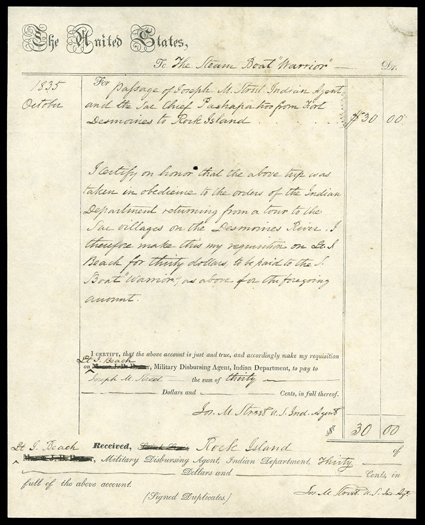 The United States,
To The Steam Boat "Warrior" Dr.
1835
October
For passage of Joseph M. Street Indian Agent
and the Sac Chief Pashapahoo from Fort
Desmoines to Rock Island $30 00
I certify on honor that the above trip was
taken in obedience to the orders of the Indian
Department returning from a tour to the
Sac villages on the Desmoines River. I
therefore make this my requisition on Lt. J.
Beach for thirty dollars to be paid to the S.
Boat "Warrior" as above for the foregoing
amount.
I CERTIFY, that the above account is just and true, and accordingly make my requisition
Lt J. Beach
on , Military Disbursing Agent, Indian Department, to pay to
Joseph M. Street the sum of thirty
Dollars and Cents, in full thereof.
Jos. M Street U.S. Ind. Agent
$ 30 00
Received, Rock Island of
Lt J. Beach
, Military Disbursing Agent, Indian Department, Thirty
Dollars and Cents, in
full of the above account.
(Signed Duplicates.) Jos M Street U.S. Ind Agt